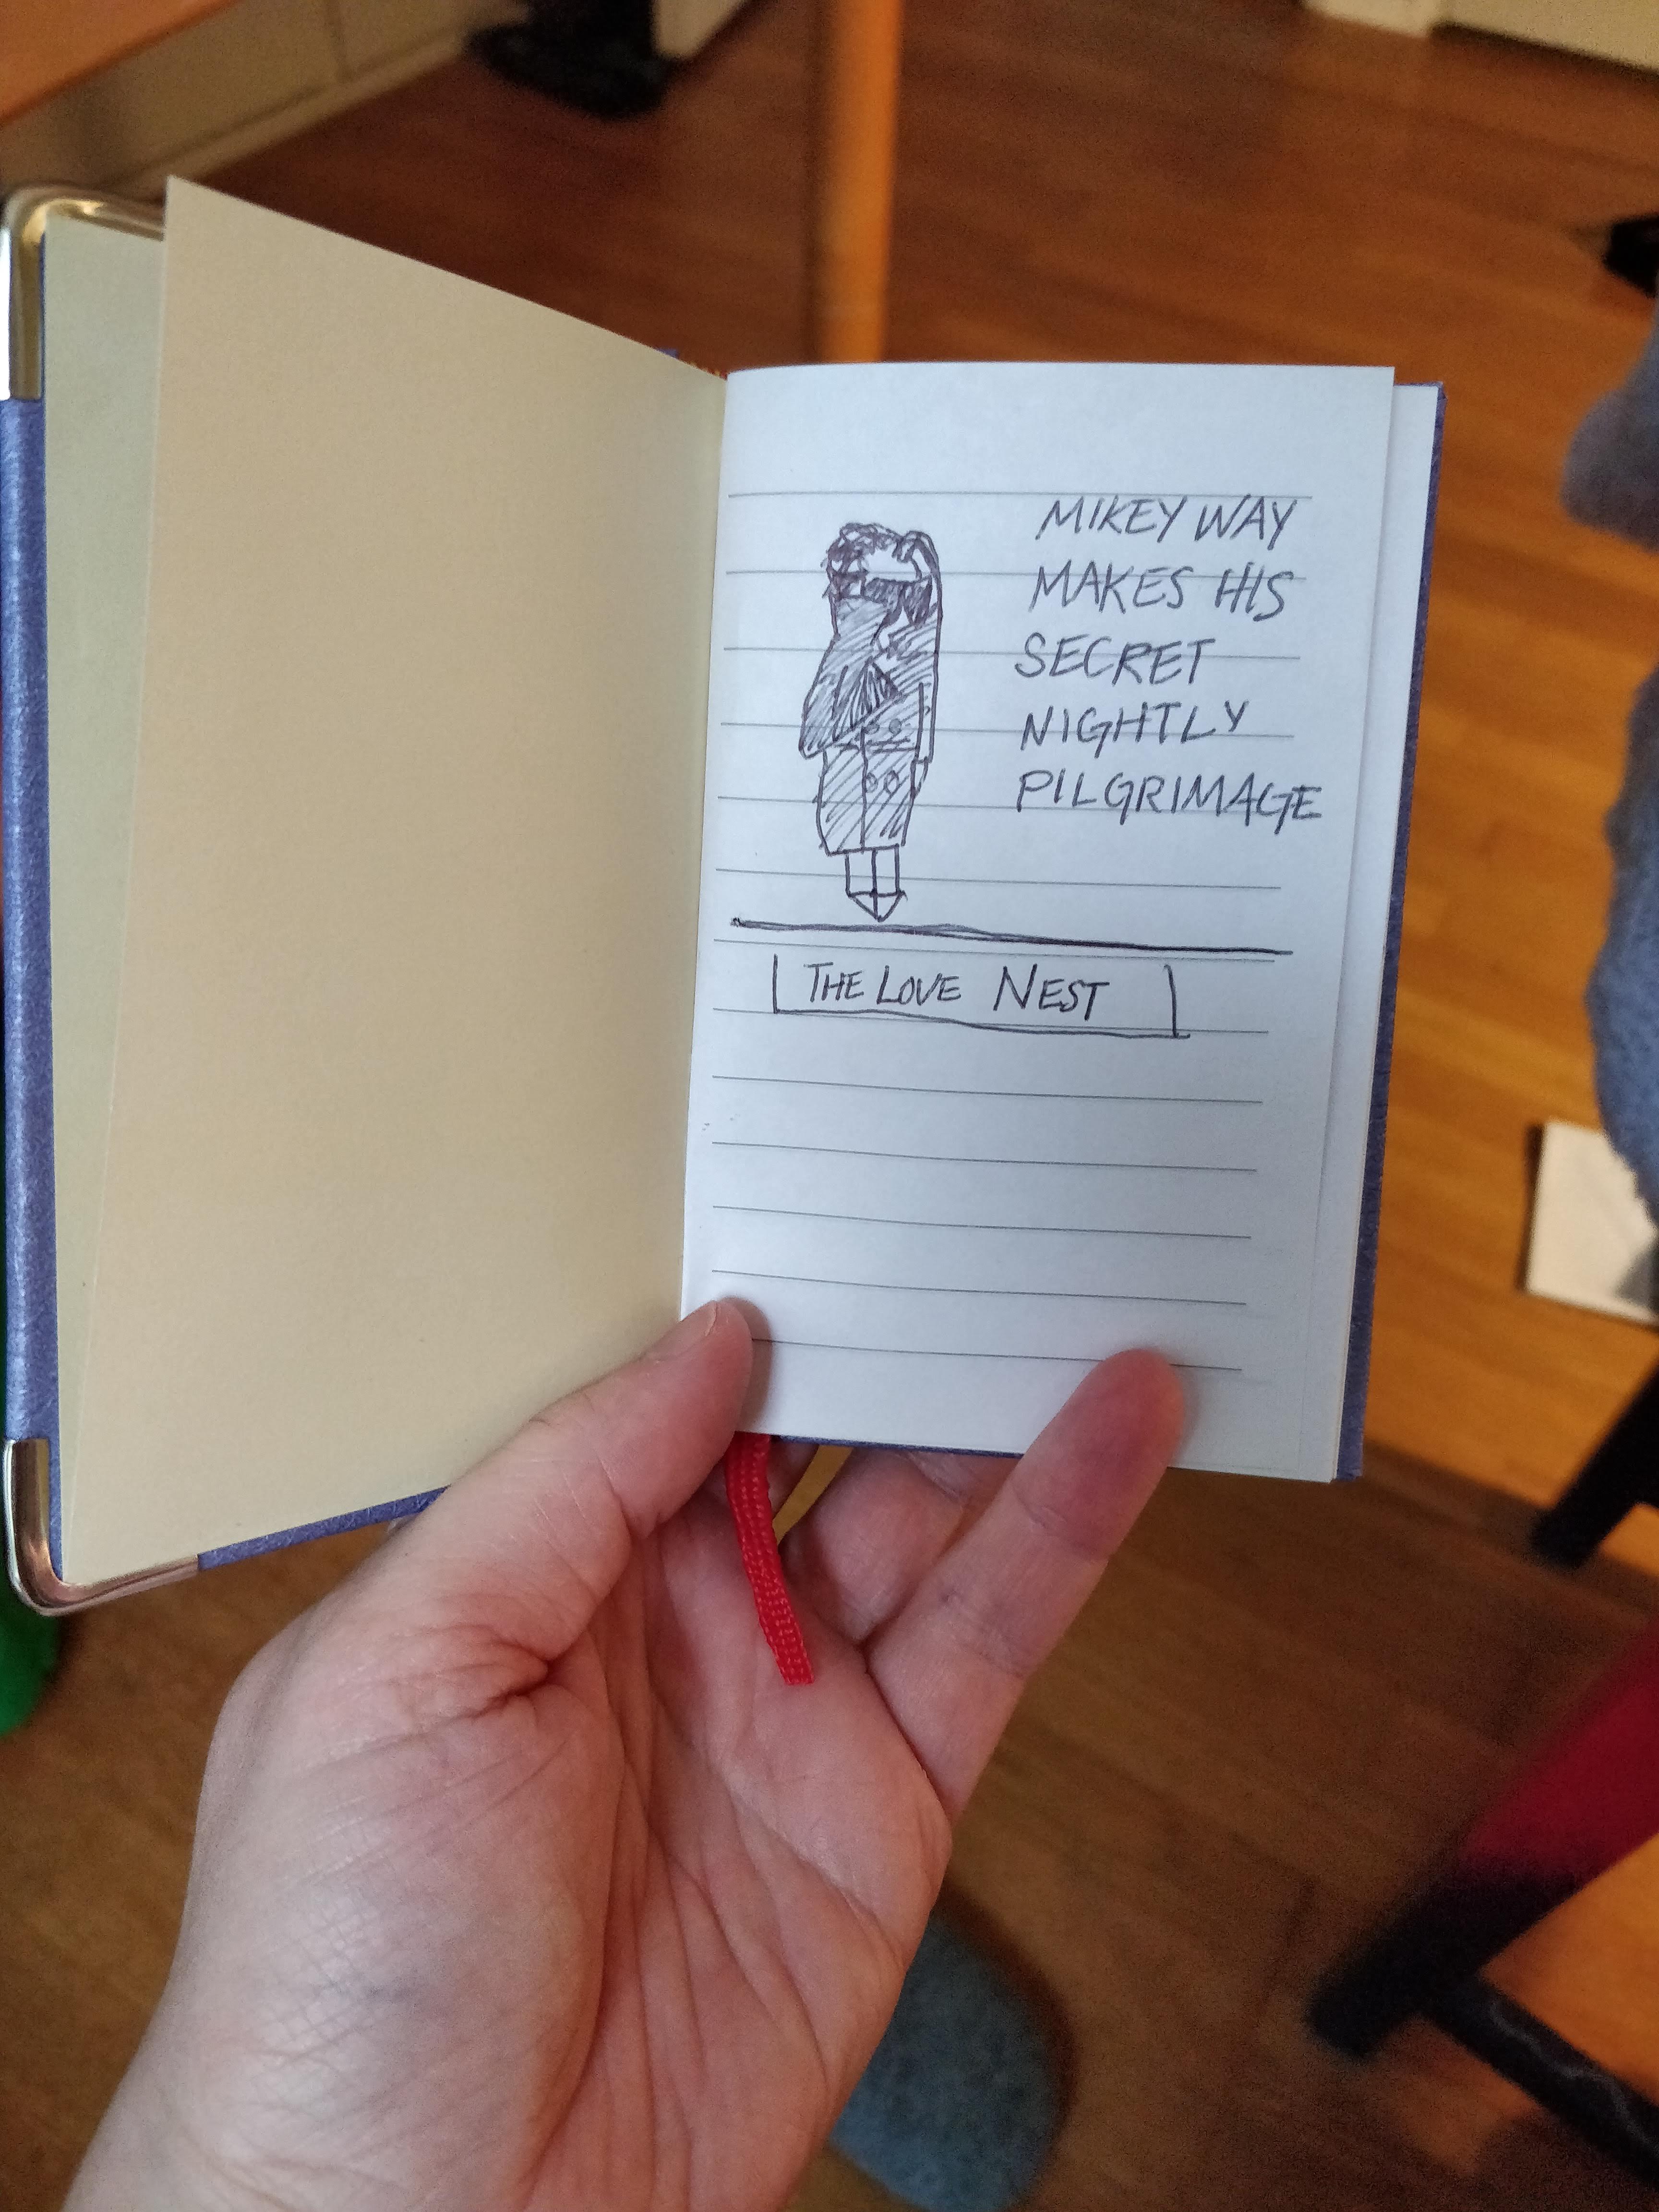 MIKEY WAY
MAKES HIS
SECRET
NIGHTLY
PILGRIMAGE
THE LOVE NEST